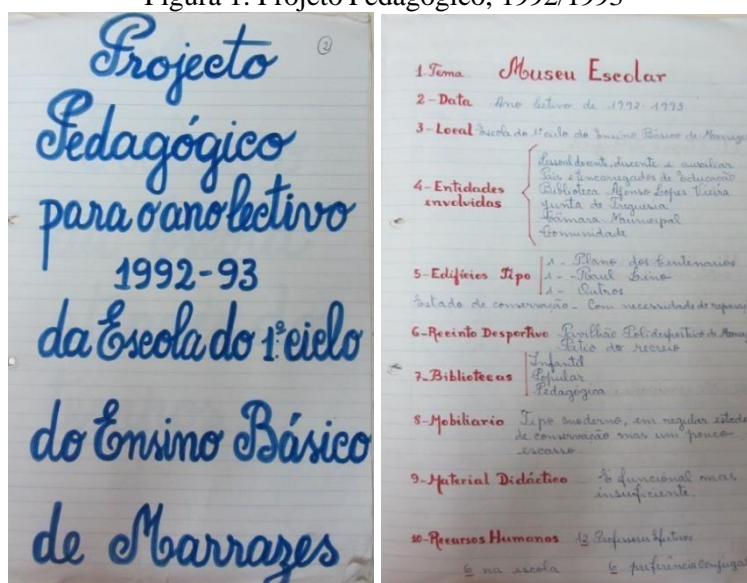 Figura 1. Projeto Pedagógico, 1992/1993
2
Projecto
Pedagógico
para o ano lectivo
1992-93
da Escola do 1º ciclo
do Ensino Básico
de Marrazes
1. Tema Museu Escolar
2 - Data Ano lectivo de 1992-1993
3 - Local Escola do 1º ciclo do Ensino Básico de
4 - Entidades envolvidas
Pessoal docente, discente e auxiliar
Pais e Encarregados de Educação
Biblioteca Afonso Lopes Vieira
Junta de Freguesia
Câmara Municipal
Comunidade
5 - Edifícios Tipo
1 - Plano dos Centenários
1 - Raul Lino
1 - Outros
Estado de conservação - Com necessidade de
6 - Recinto Desportivo Pavilhão Polidesportivo de
Pátio do recreio
7. Bibliotecas
Infantil
Popular
Pedagógica
8 - Mobiliario Tipo moderno, em regular estado
de conservação mas um pouco
escasso.
9 - Material Didáctico É funcional mas
insuficiente.
10 - Recursos Humanos 12 Professores Efetivos
6 na escola 6 preferência